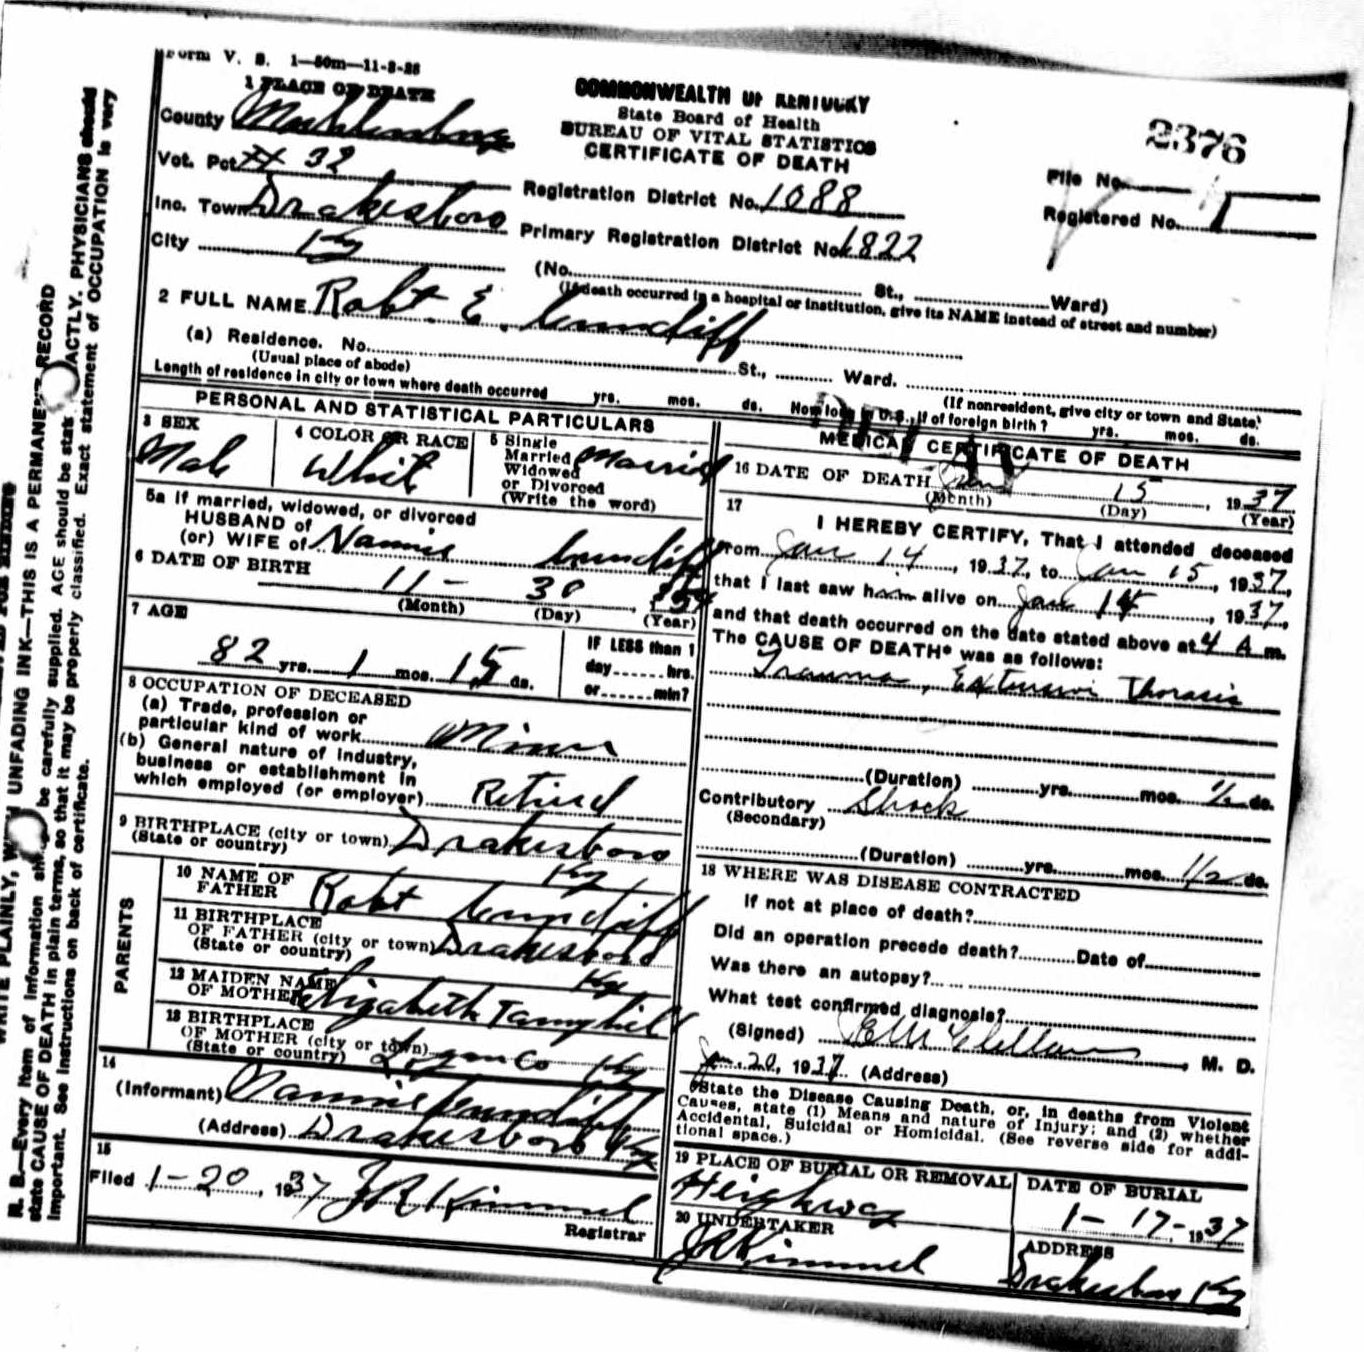 Form V. S. 1—50m—11-3-36
1 PLACE OF DEATH
COMMONWEALTH OF KENTUCKY
State Board of Health
BUREAU OF VITAL STATISTICS
CERTIFICATE OF DEATH
2376
County Muhlenberg
Vot. Pct. # 32
Inc. Town Drakesboro
City Ky
Registration District No. 1088
Primary Registration District No. 1822
File No.
Registered No. 1
(No. St., Ward)
(If death occurred in a hospital or institution, give its NAME instead of street and number)
2 FULL NAME Robt. E. Cundiff
(a) Residence. No. St., Ward.
(Usual place of abode) (If nonresident, give city or town and State)
Length of residence in city or town where death occurred yrs. mos. ds. How long in U.S., if of foreign birth? yrs. mos. ds.
PERSONAL AND STATISTICAL PARTICULARS
3 SEX
Male
4 COLOR OR RACE
White
5 Single
Married
Widowed
or Divorced
(Write the word)
Married
5a If married, widowed, or divorced
HUSBAND of
(or) WIFE of Nannie Cundiff
6 DATE OF BIRTH
11- 30
(Month) (Day) (Year)
7 AGE
82 yrs. 1 mos. 15 ds.
IF LESS than 1
day hrs.
or min?
8 OCCUPATION OF DECEASED
(a) Trade, profession or
particular kind of work Miner
(b) General nature of industry,
business or establishment in
which employed (or employer) Retired
9 BIRTHPLACE (city or town) Drakesboro
(State or country) Ky
PARENTS
10 NAME OF
FATHER Robt Cundiff
11 BIRTHPLACE
OF FATHER (city or town) Drakesboro
(State or country) Ky
12 MAIDEN NAME
OF MOTHER Elizabeth
13 BIRTHPLACE
OF MOTHER (city or town)
(State or country) Logan Co Ky
14
(Informant) Nannie Cundiff
(Address) Drakesboro Ky
15
Filed 1-20, 1937 J R Kimmel
Registrar
MEDICAL CERTIFICATE OF DEATH
16 DATE OF DEATH Jan 15, 1937
(Month) (Day) (Year)
17
I HEREBY CERTIFY, That I attended deceased
from Jan 14, 1937, to Jan 15, 1937,
that I last saw him alive on Jan 14, 1937,
and that death occurred on the date stated above at 4 A m.
The CAUSE OF DEATH* was as follows:
Trauma, Extensive Thorasic
(Duration) yrs. mos. 1/2 ds.
Contributory Shock
(Secondary)
(Duration) yrs. mos. 1/2 ds.
18 WHERE WAS DISEASE CONTRACTED
If not at place of death?
Did an operation precede death? Date of
Was there an autopsy?
What test confirmed diagnosis?
(Signed) M. D.
Jan. 20, 1937 (Address)
*State the Disease Causing Death, or, in deaths from Violent
Causes, state (1) Means and nature of Injury; and (2) whether
Accidental, Suicidal or Homicidal. (See reverse side for addi-
tional space.)
19 PLACE OF BURIAL OR REMOVAL
Heighway
DATE OF BURIAL
1-17-, 1937
20 UNDERTAKER
J R Kimmel
ADDRESS
Drakesboro Ky
WRITE PLAINLY, WITH UNFADING INK—THIS IS A PERMANENT RECORD
N. B.—Every item of information should be carefully supplied. AGE should be stated EXACTLY. PHYSICIANS should
state CAUSE OF DEATH in plain terms, so that it may be properly classified. Exact statement of OCCUPATION is very
important. See instructions on back of certificate.